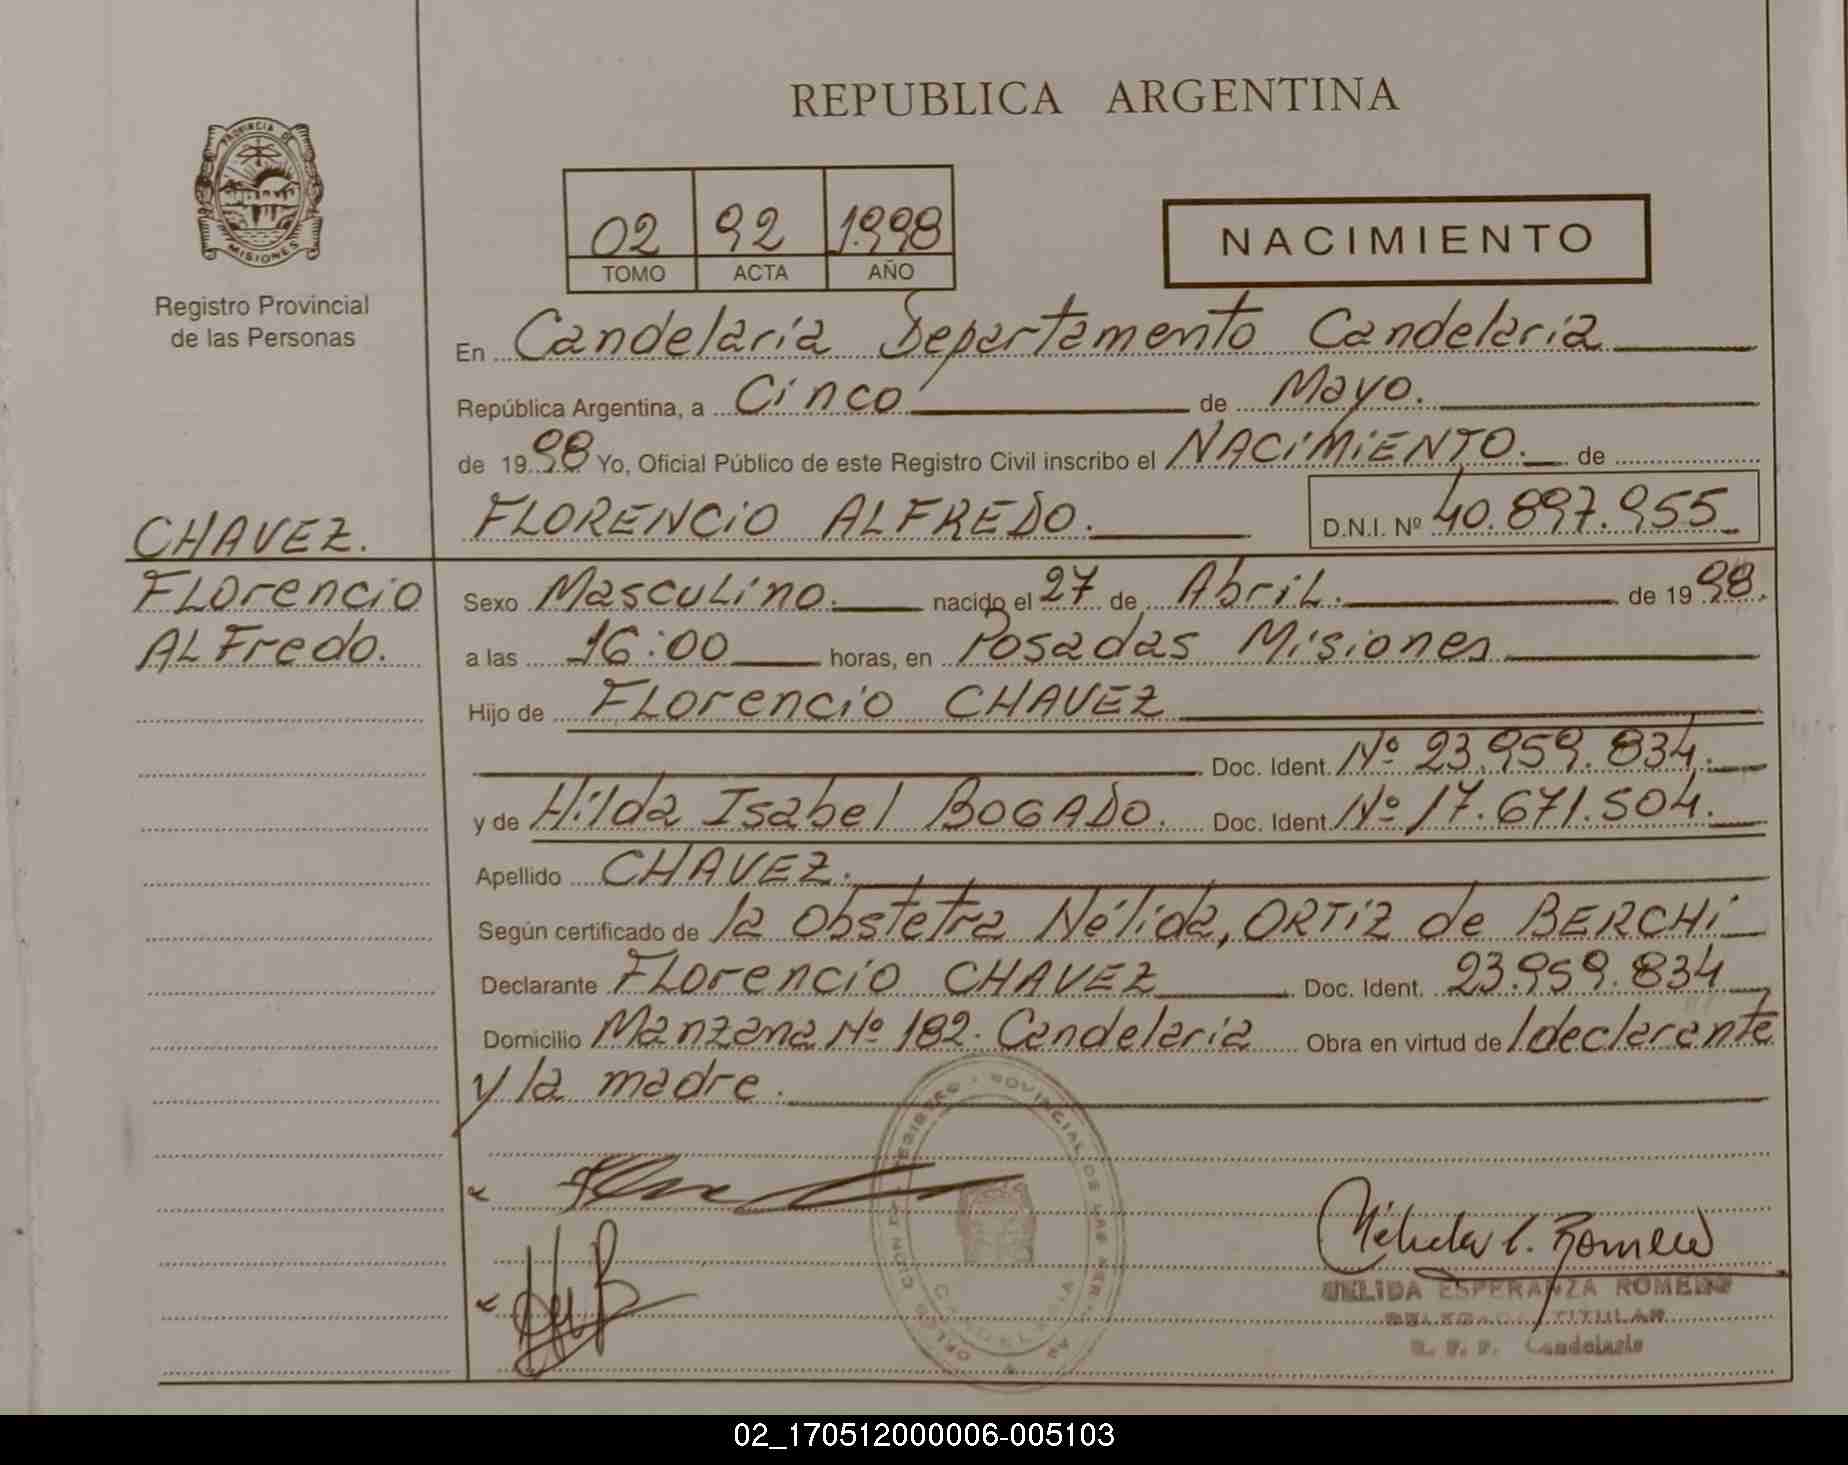 REPUBLICA ARGENTINA
PROVINCIA DE
MISIONES
Registro Provincial
de las Personas
02 92 1.998
TOMO ACTA AÑO
NACIMIENTO
En Candelaria Departamento Candelaria
República Argentina, a Cinco de Mayo.
de 1998 Yo, Oficial Público de este Registro Civil inscribo el NACIMIENTO. de
CHAVEZ.
FLORENCIO ALFREDO. D.N.I. Nº 40.897.955
FLorencio
ALFredo.
Sexo MascuLino. nacido el 27 de AbriL. de 1998.
a las 16:00 horas, en Posadas Misiones
Hijo de FLorencio CHAVEZ
Doc. Ident. Nº 23.959.834.
y de Hilda Isabel BOGADO. Doc. Ident. Nº 17.671.504.
Apellido CHAVEZ.
Según certificado de la Obstetra Nélida, ORTIZ de BERCHI
Declarante FLorencio CHAVEZ Doc. Ident. 23.959.834
Domicilio Manzana Nº 182. Candelaria Obra en virtud de ldeclarante
y la madre.
NELIDA ESPERANZA ROMERO
TITULAR
Candelaria
02_170512000006-005103